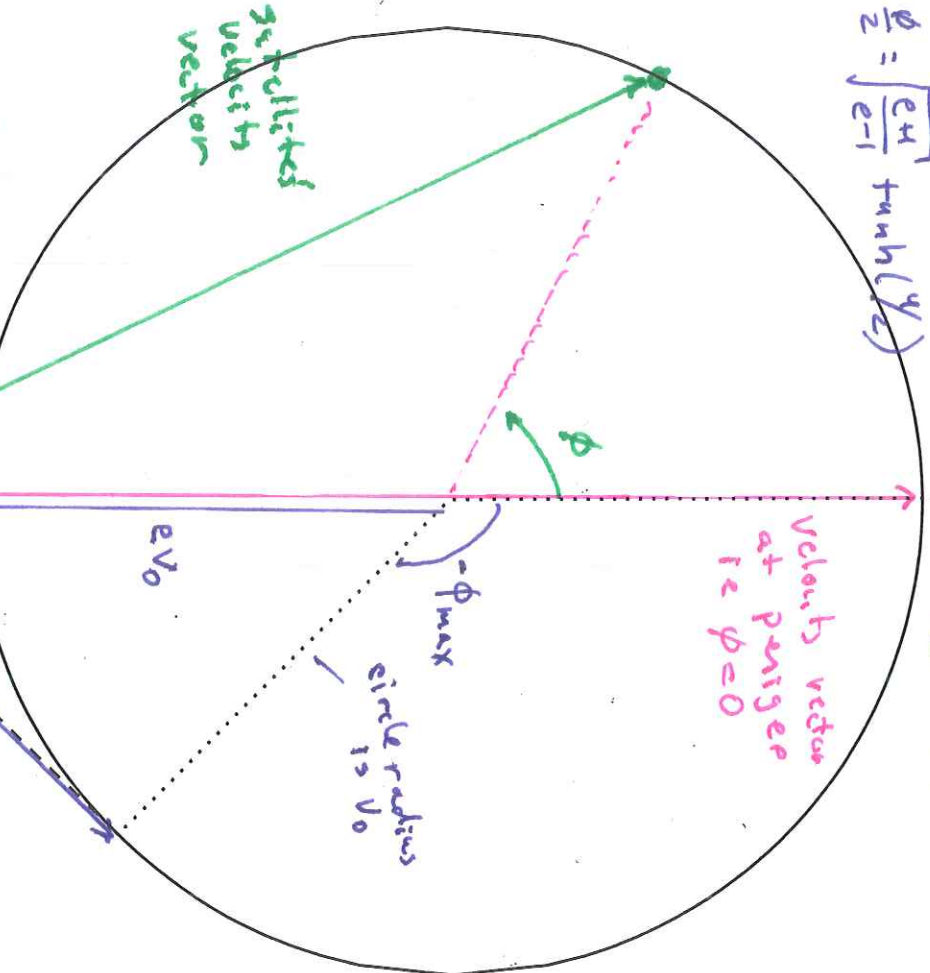 φ/2 = √(e+1/e-1) tanh(Ψ/2)
satellites
velocity
vector
φ
velocity vector
at perigee
ie φ=0
eV₀
-φmax
circle radius
is V₀